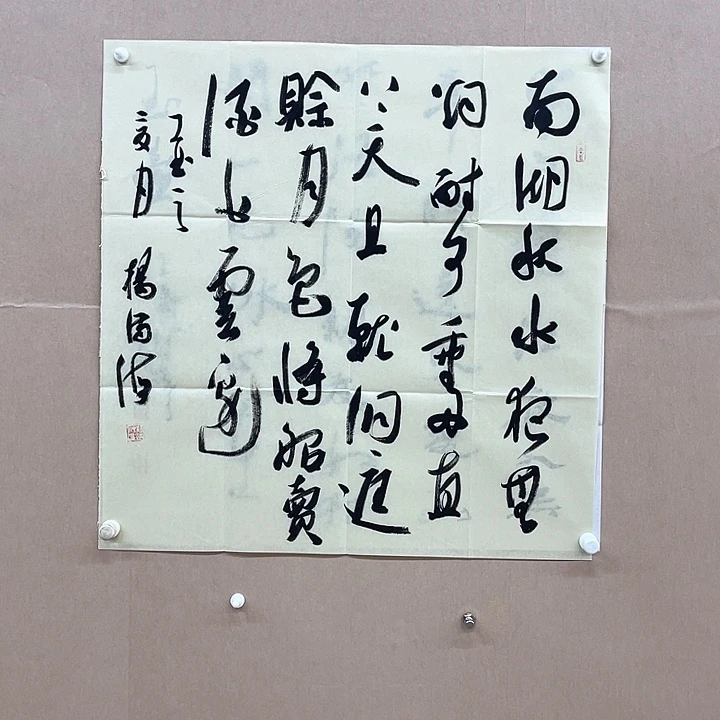 南湖秋水夜無
烟耐可乘流直
上天且就洞庭
賒月色將船買
酒白雲邊
之
月 楊